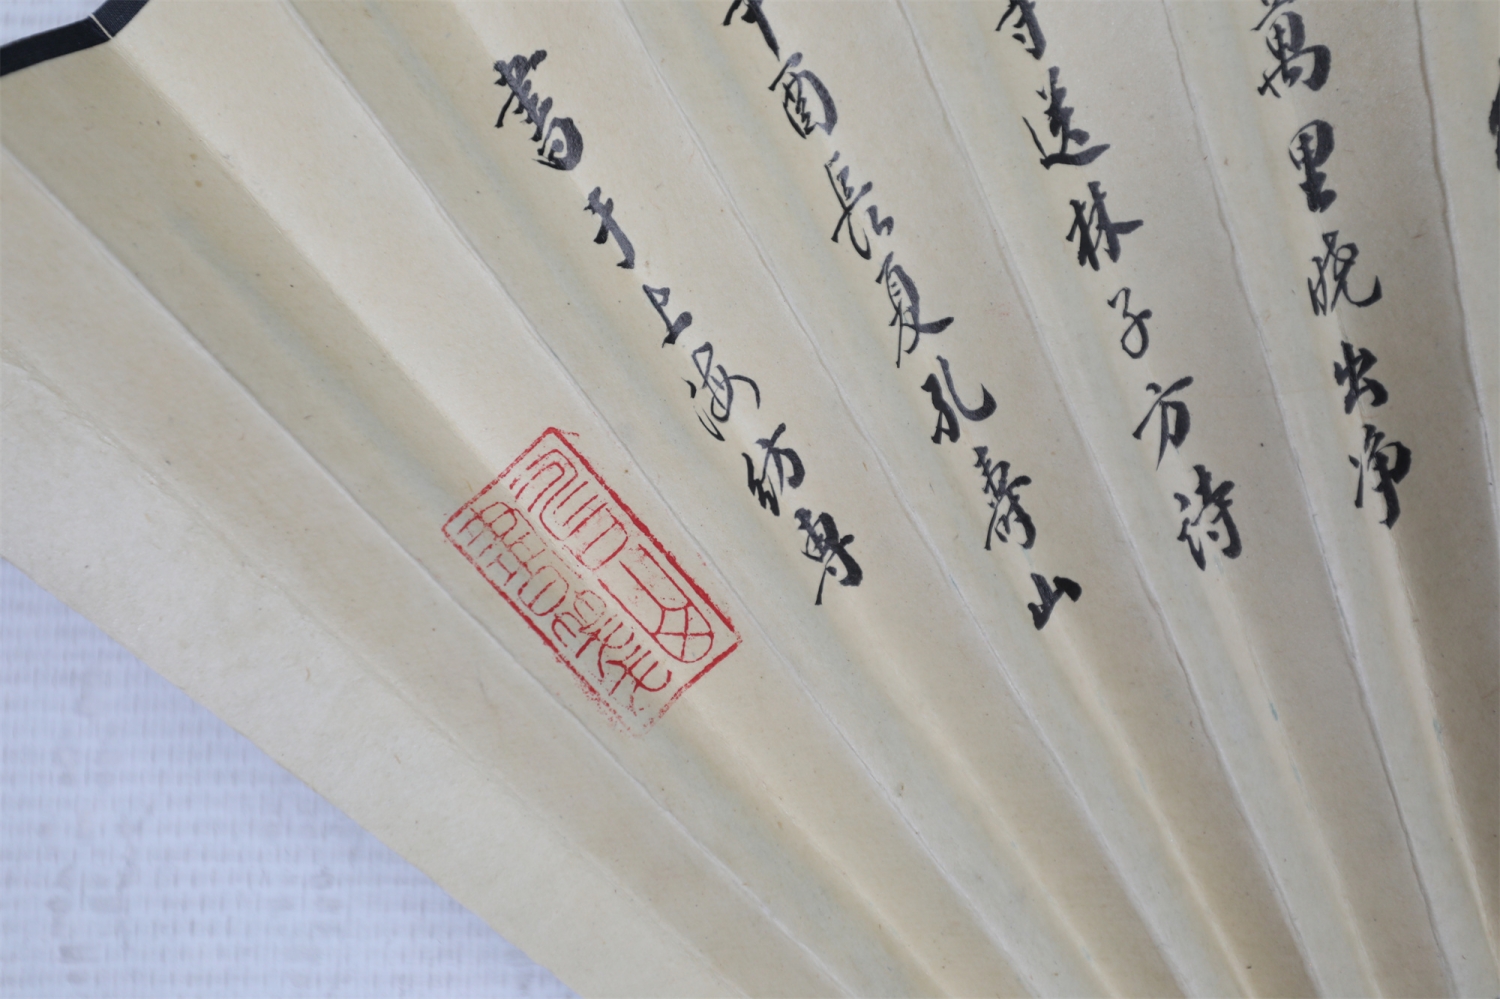 萬里晓出净
寺送林子方诗
辛酉長夏孔壽山
書于上海纺專